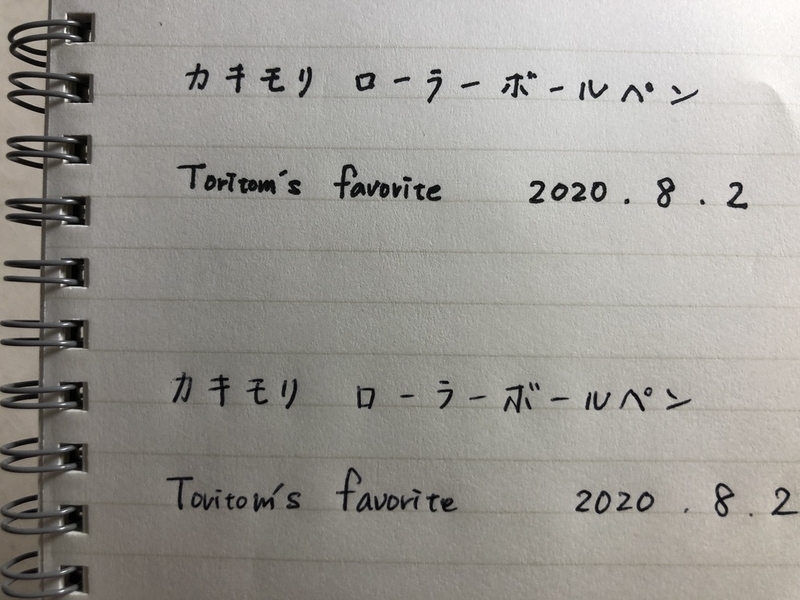 カキモリ ローラーボールペン
Toritom's favorite 2020.8.2
カキモリ ローラーボールペン
Toritom's favorite 2020.8.2